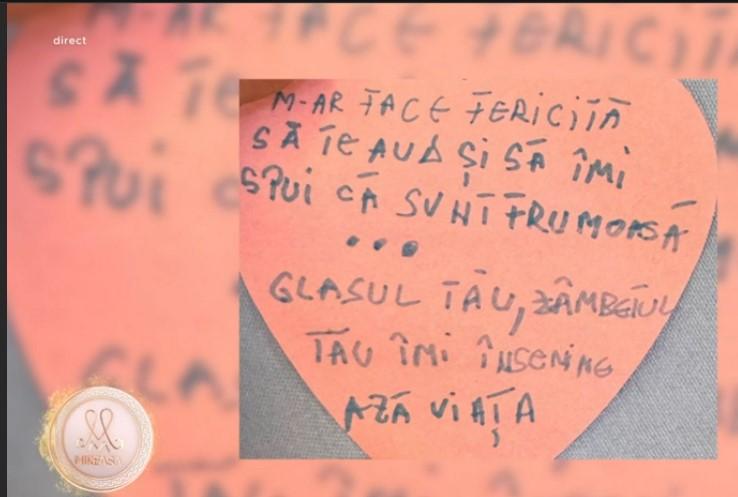 direct
M-AR FACE FERICITĂ
SĂ TE AUD ȘI SĂ ÎMI
SPUI CĂ SUNT FRUMOASĂ
...
GLASUL TĂU, ZÂMBETUL
TĂU ÎMI ÎNSENINE
AZĂ VIAȚA
MIREASA